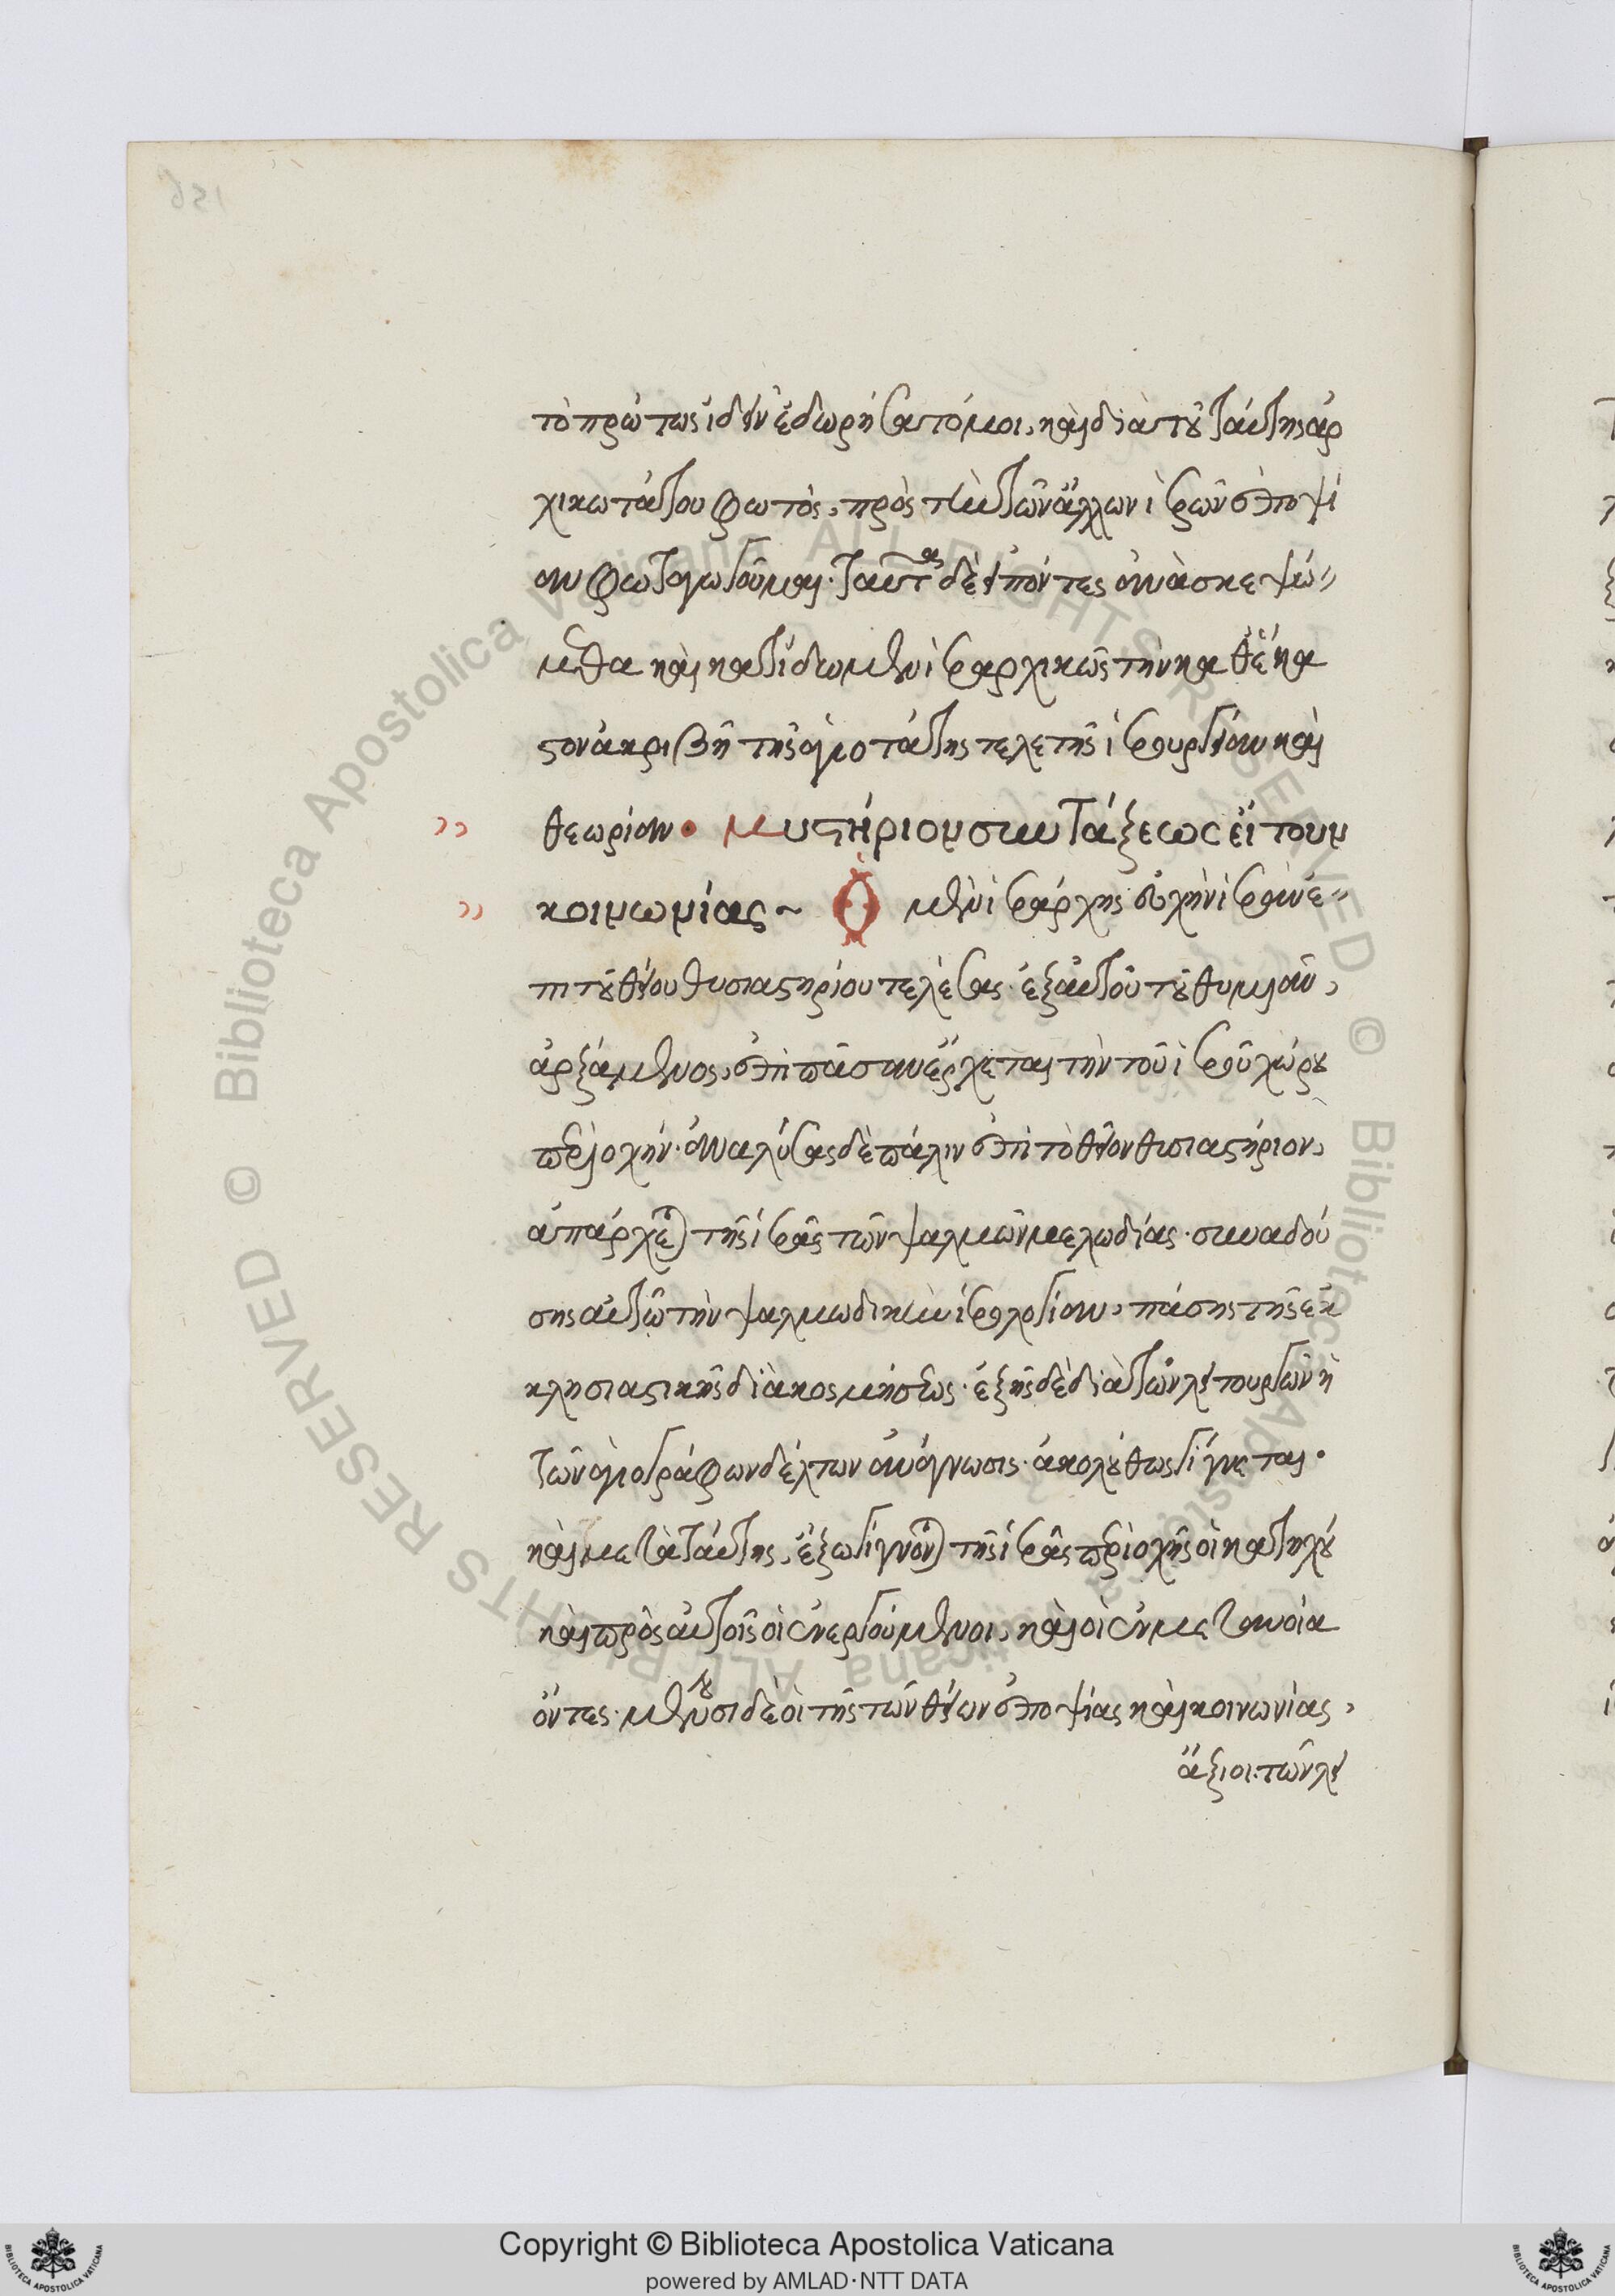 156
τὸ πρώτως ἰδεῖν ἐδωρήσατό μοι, καὶ διὰ τοῦ ταύτης ἀρ
χικωτάτου φωτὸς, πρὸς τὴν τῶν ἄλλων ἱερῶν ἐποψί
αν φωταγωγοῦμαι. ταῦτα δὲ εἰπόντες ἀνασκεψώ
μεθα καὶ κατίδωμεν ἱεραρχικῶς τὴν καθ' ἕκα
στον ἀκριβῆ τῆς ἁγιοτάτης τελετῆς ἱερουργίαν καὶ
θεωρίαν. μυστήριον συνάξεως εἴτουν
κοινωνίας ~ Ὁ μὲν ἱεράρχης εὐχὴν ἱερὰν ἐ
πὶ τοῦ θείου θυσιαστηρίου τελέσας. ἐξ αὐτοῦ τοῦ θυμιᾶν,
ἀρξάμενος, ἐπὶ πᾶσαν ἔρχεται τὴν τοῦ ἱεροῦ χώρου
περιοχήν. ἀναλύσας δὲ πάλιν ἐπὶ τὸ θεῖον θυσιαστήριον,
ἀπάρχεται τῆς ἱερᾶς τῶν ψαλμῶν μελωδίας. συναδού
σης αὐτῷ τὴν ψαλμωδικὴν ἱερολογίαν, πάσης τῆς ἐκ
κλησιαστικῆς διακοσμήσεως. ἑξῆς δὲ διὰ τῶν λειτουργῶν ἡ
τῶν ἁγιογράφων δέλτων ἀνάγνωσις. ἀκολούθως γίγνεται.
καὶ μετὰ ταύτης, ἔξω γίγνονται τῆς ἱερᾶς περιοχῆς οἱ κατηχού
καὶ πρὸς αὐτοῖς οἱ ἐνεργούμενοι, καὶ οἱ ἐν μετανοία
ὄντες. μένουσι δὲ οἱ τῆς τῶν θείων ἐποψίας καὶ κοινωνίας,
ἄξιοι. τῶν λει
Copyright © Biblioteca Apostolica Vaticana
powered by AMLAD·NTT DATA